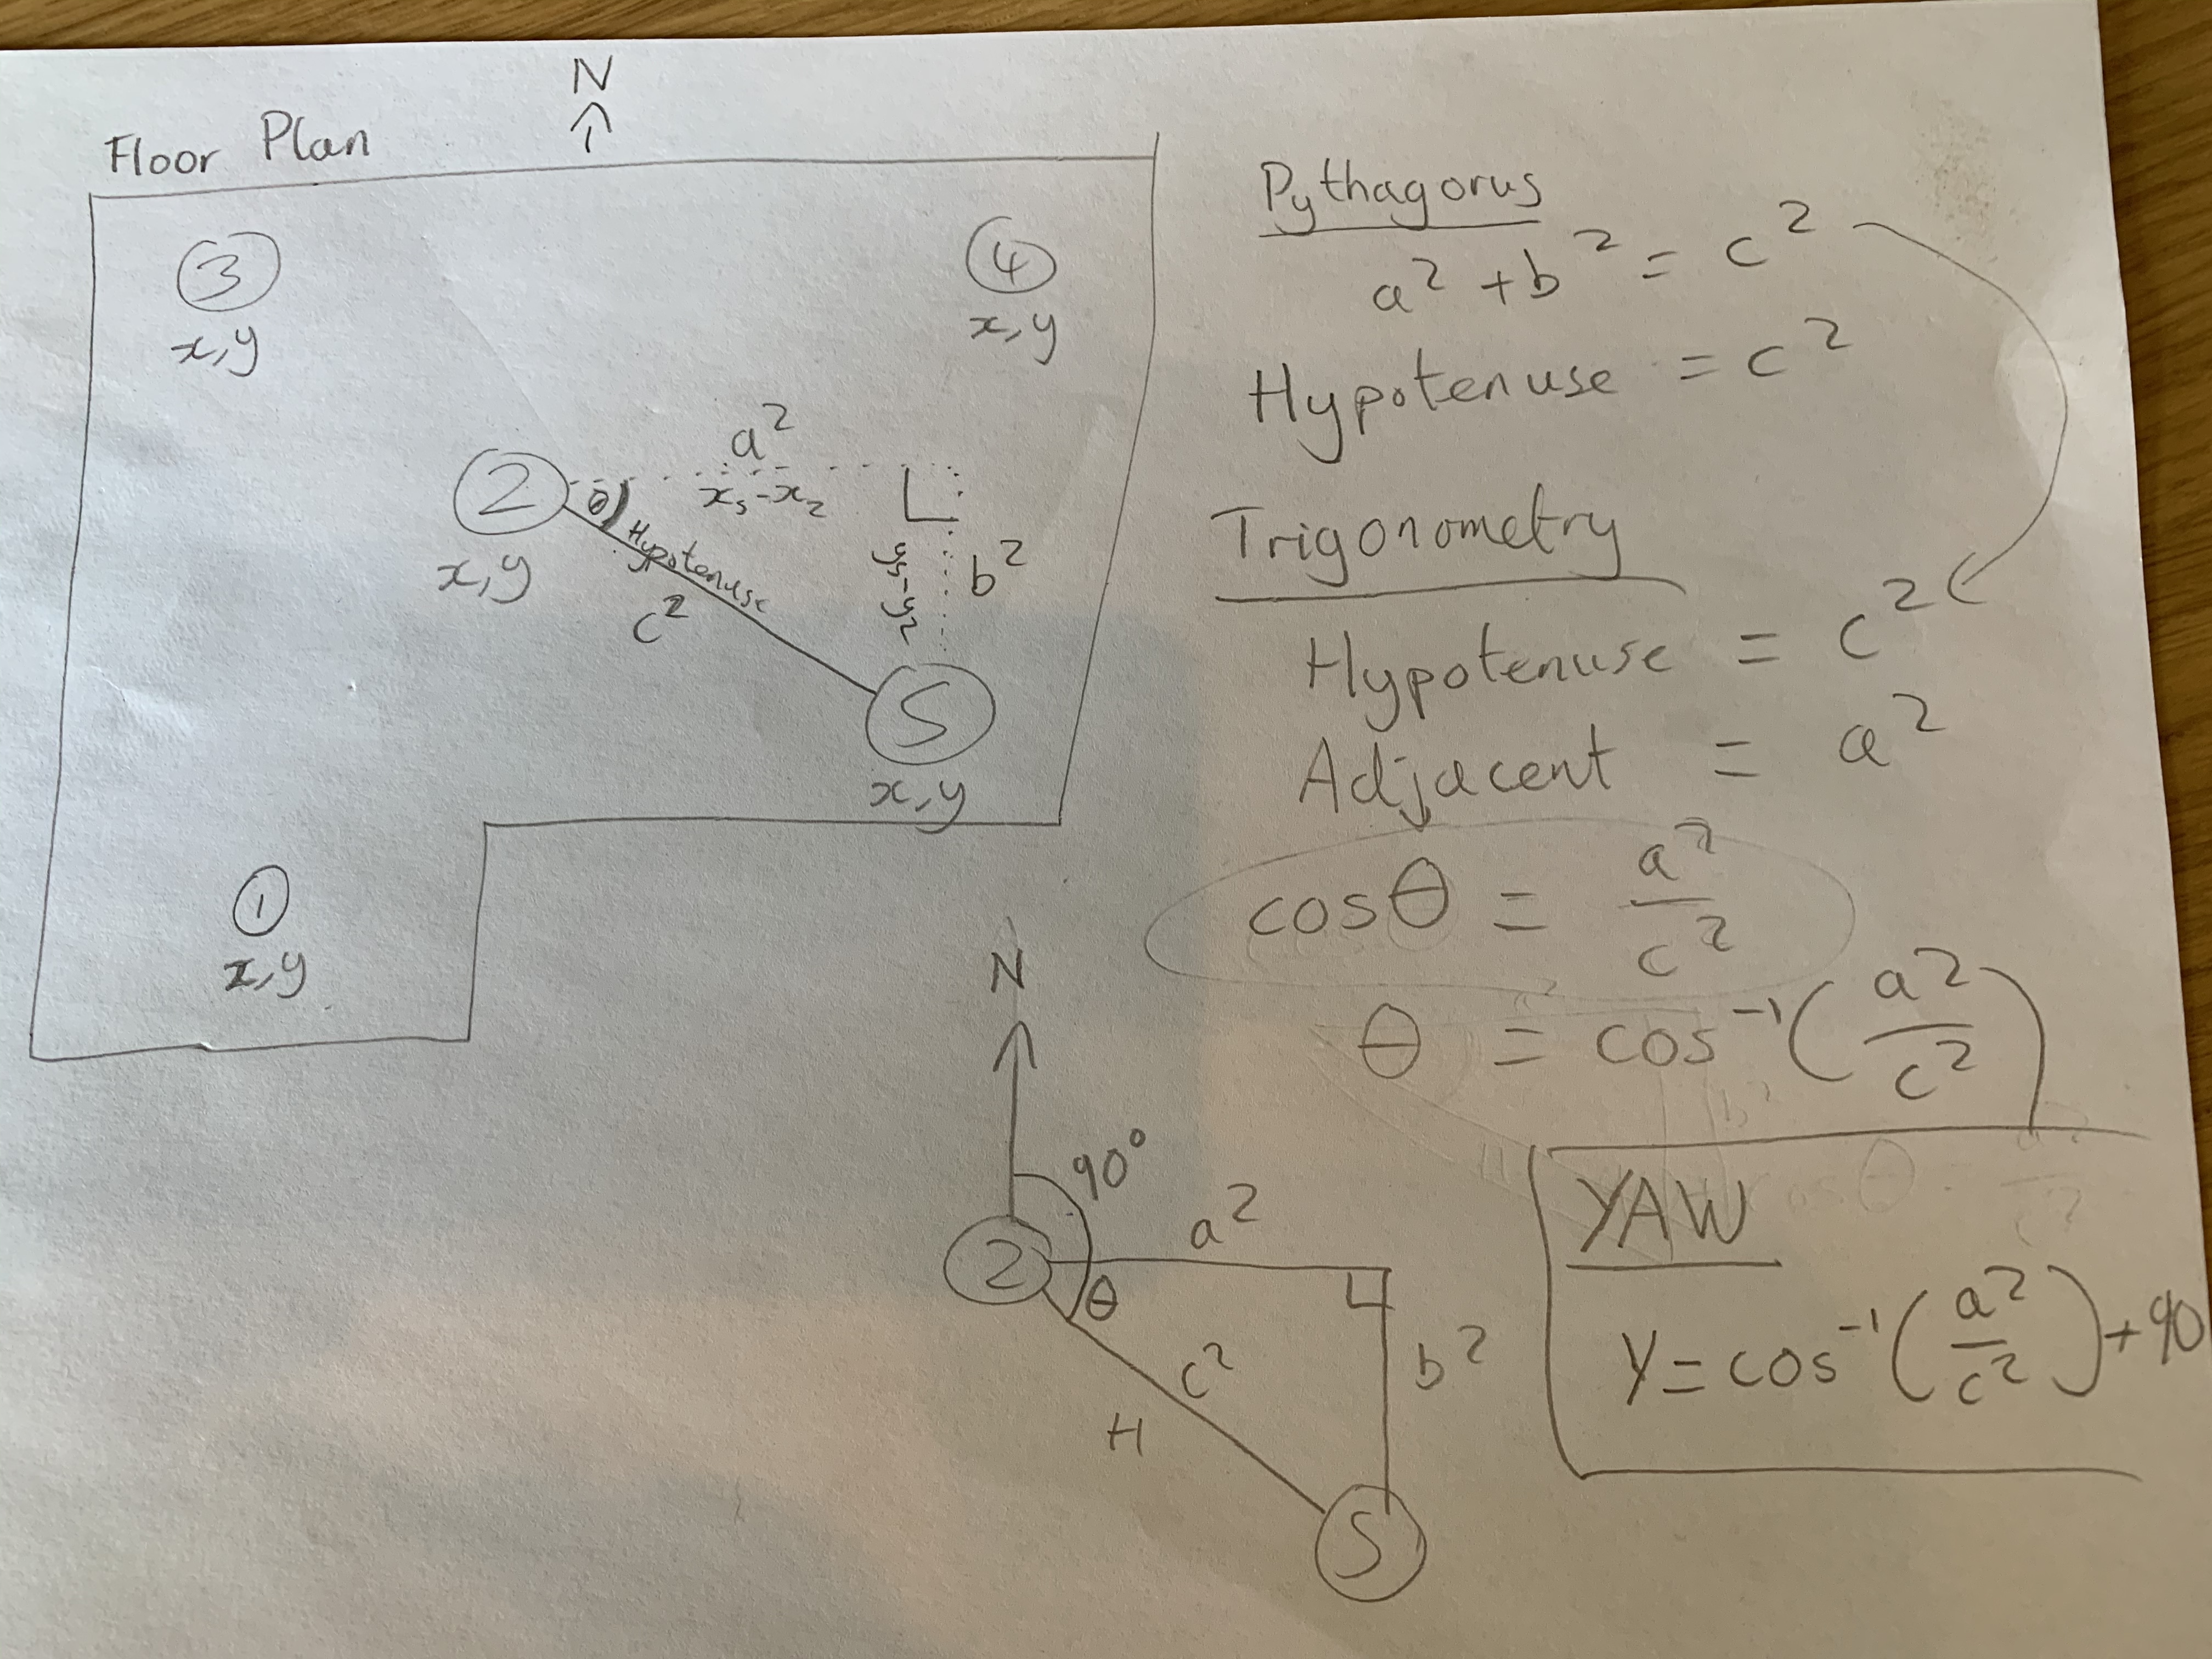 Floor Plan
N
3
x,y
4
x,y
a²
2
θ
x₅-x₂
x,y
Hypotenuse
c²
y₅-y₂
b²
5
x,y
1
x,y
Pythagorus
a² + b² = c²
Hypotenuse = c²
Trigonometry
Hypotenuse = c²
Adjacent = a²
cosθ = a²/c²
θ = cos⁻¹(a²/c²)
N
90°
2
a²
θ
c²
H
b²
5
YAW
Y = cos⁻¹(a²/c²)+90